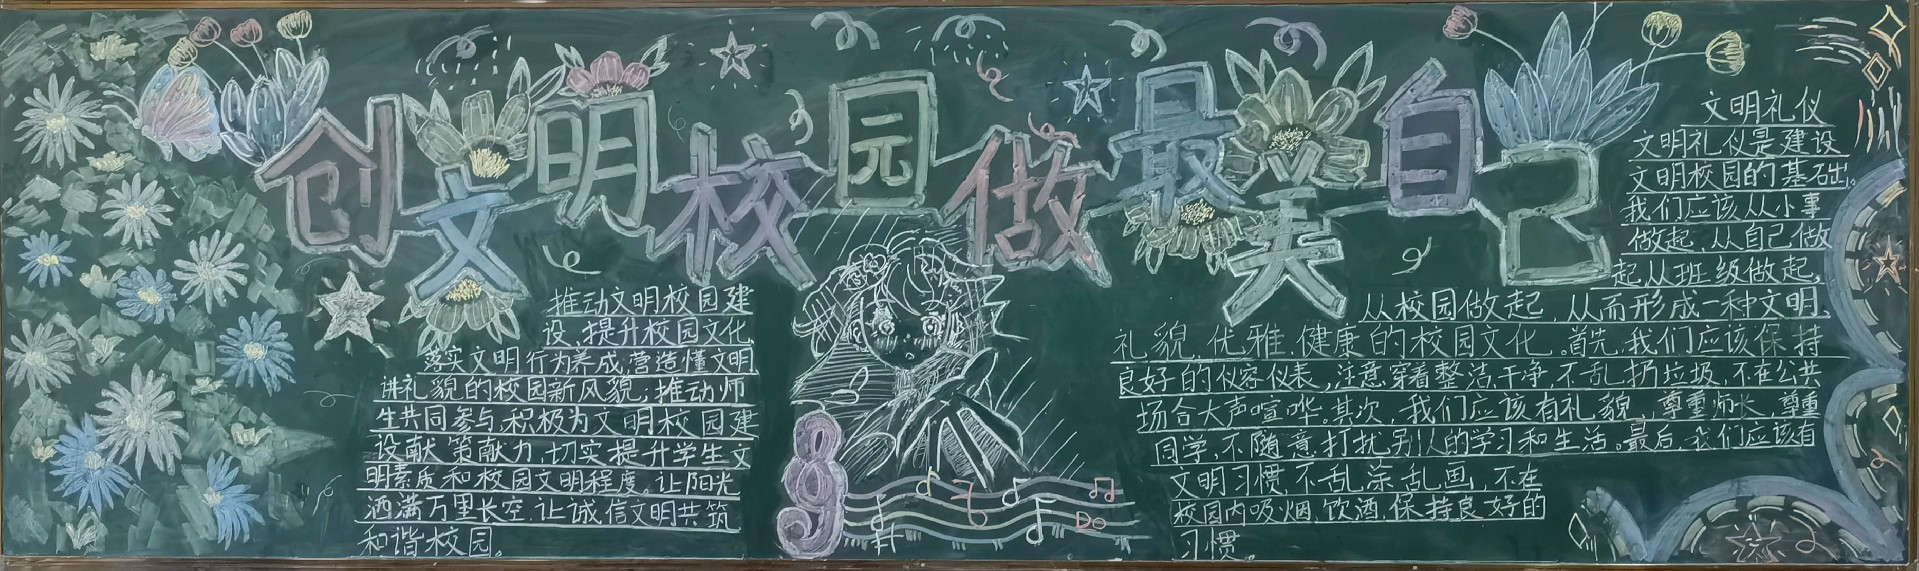 创文明校园做最美自己
推动文明校园建
设,提升校园文化
落实文明行为养成,营造懂文明
讲礼貌的校园新风貌;推动师
生共同参与,积极为文明校园建
设献策献力,切实提升学生文
明素质和校园文明程度。让阳光
洒满万里长空,让诚信文明共筑
和谐校园。
Do
文明礼仪
文明礼仪是建设
文明校园的基础。
我们应该从小事
做起,从自己做
起,从班级做起,
从校园做起,从而形成一种文明、
礼貌、优雅、健康的校园文化。首先,我们应该保持
良好的仪容仪表,注意穿着整洁干净,不乱扔垃圾,不在公共
场合大声喧哗。其次,我们应该有礼貌,尊重师长,尊重
同学,不随意打扰别人的学习和生活。最后,我们应该有
文明习惯,不乱涂乱画,不在
校园内吸烟、饮酒,保持良好的
习惯。